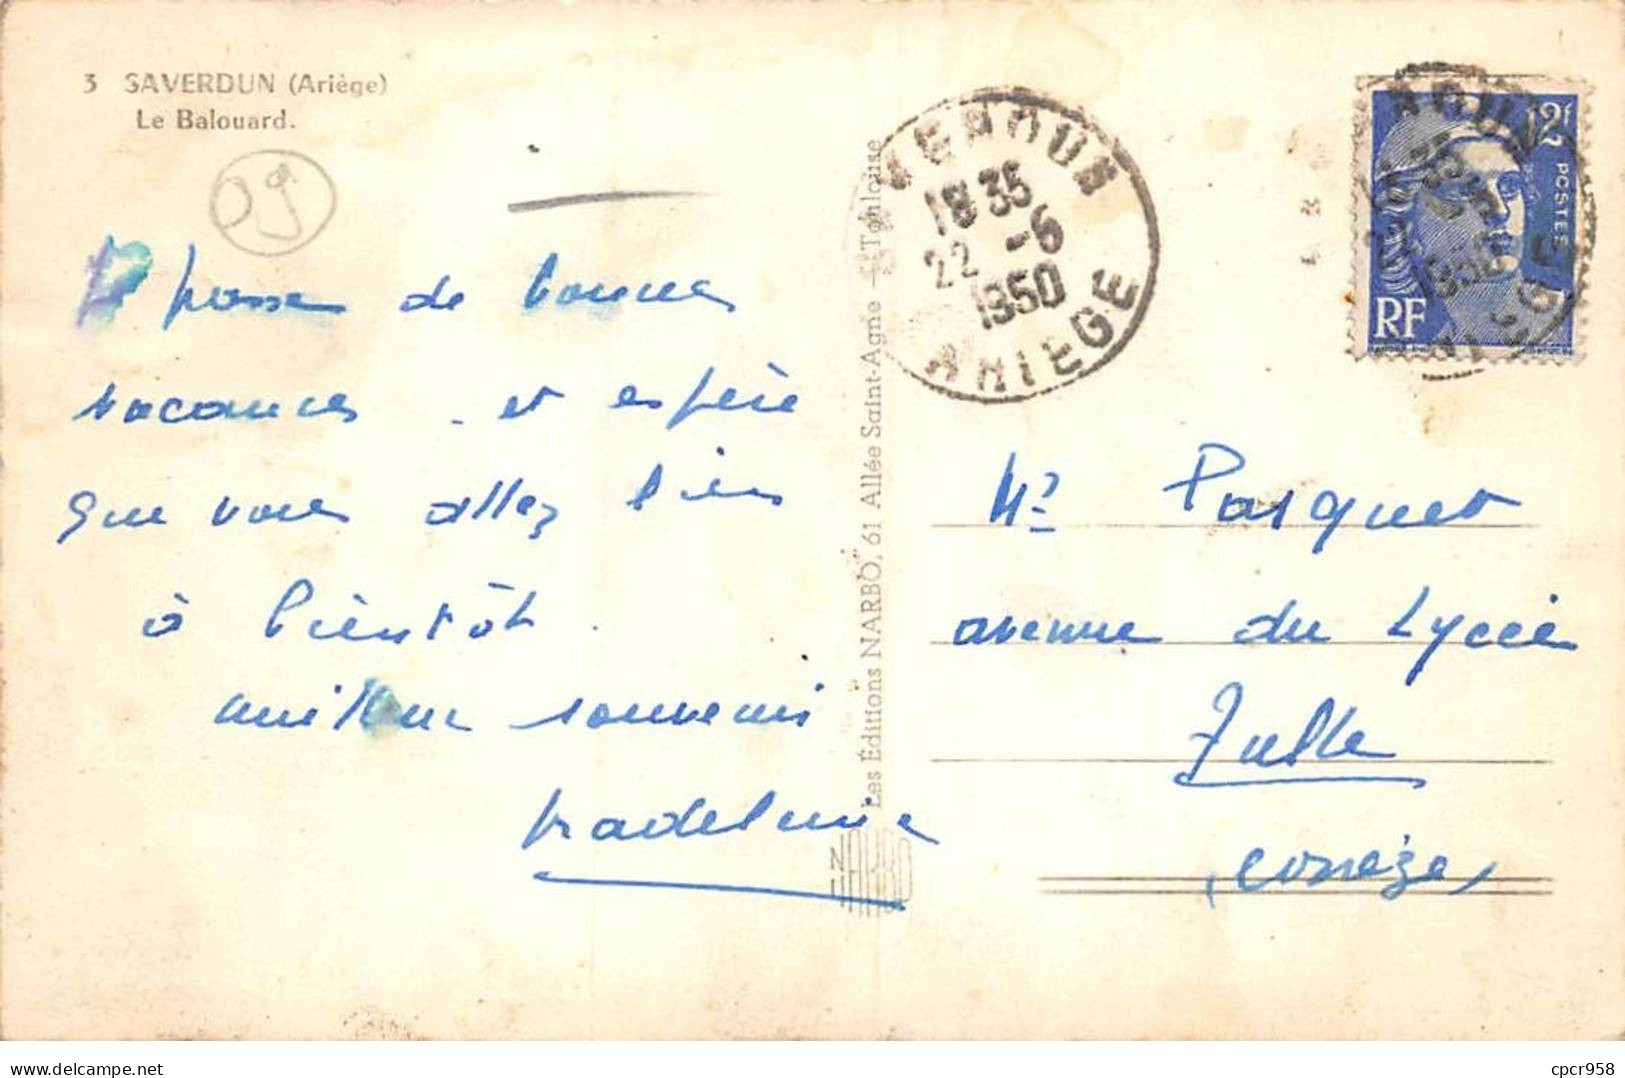 3 SAVERDUN (Ariège)
Le Balouard.
09
passe de bonnes
vacances - et espère
que vous allez bien
à bientôt.
meilleur souvenir
Madeleine
Les Éditions NARBO, 61 Allée Saint-Agne - Toulouse
NARBO
18 35
22 -6
1950
ARIEGE
12F
POSTES
RF
1950
Mr Pasquet
avenue du Lycée
Tulle
(Corrèze)
cpcr958